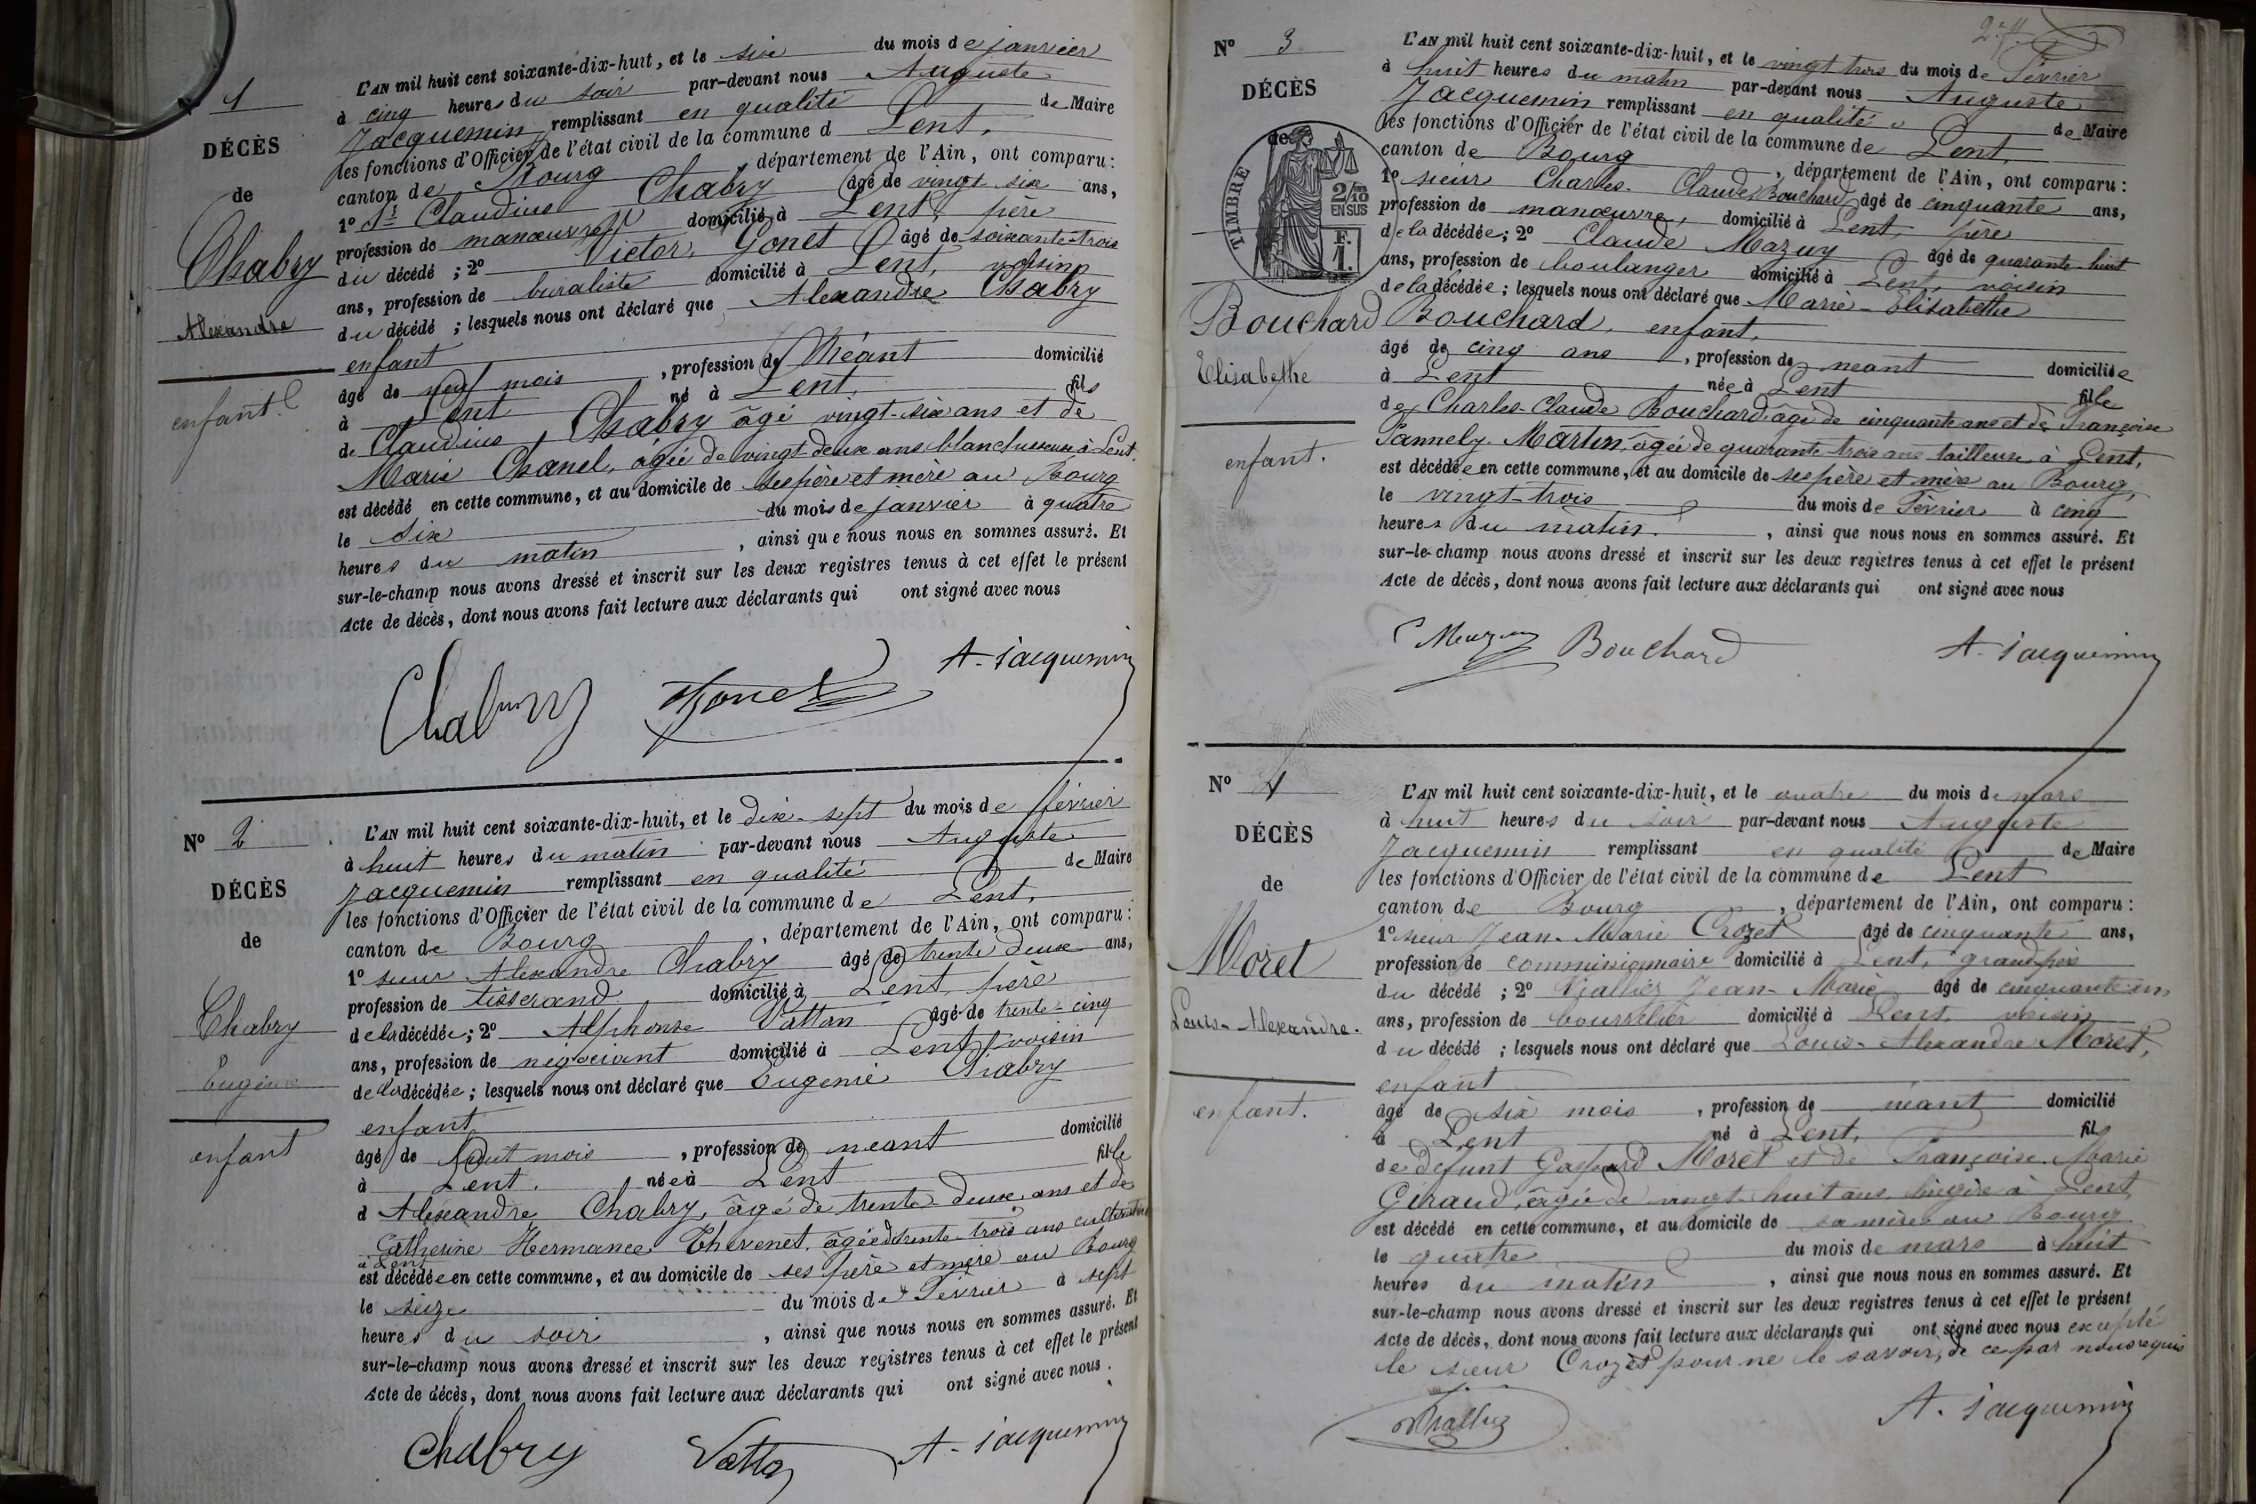 1
DÉCÈS
de
Chabry
Alexandre
enfant.
L'AN mil huit cent soixante-dix-huit, et le six du mois de janvier
à cinq heures du soir par-devant nous Auguste
Jacquemin remplissant en qualité de Maire
les fonctions d'Officier de l'état civil de la commune d Lent,
canton de Bourg, département de l'Ain, ont comparu:
1º Sr Claudius Chabry âgé de vingt-six ans,
profession de manœuvre domicilié à Lent, père
du décédé ; 2º Victor, Gonet âgé de soixante-trois
ans, profession de buraliste domicilié à Lent, voisin
du décédé ; lesquels nous ont déclaré que Alexandre Chabry
enfant
âgé de neuf mois, profession de Néant domicilié
à Lent né à Lent, fils
de Claudius Chabry âgé vingt-six ans et de
Marie Chanel, âgée de vingt deux ans blanchisseuse à Lent.
est décédé en cette commune, et au domicile de ses père et mère au Bourg
le six du mois de janvier à quatre
heures du matin, ainsi que nous nous en sommes assuré. Et
sur-le-champ nous avons dressé et inscrit sur les deux registres tenus à cet effet le présent
Acte de décès, dont nous avons fait lecture aux déclarants qui ont signé avec nous
Chabry Gonet A. Jacquemin
Nº 2
DÉCÈS
de
Chabry
Eugénie
enfant
L'AN mil huit cent soixante-dix-huit, et le dix-sept du mois de février
à huit heures du matin par-devant nous Auguste
Jacquemin remplissant en qualité de Maire
les fonctions d'Officier de l'état civil de la commune de Lent,
canton de Bourg, département de l'Ain, ont comparu:
1º sieur Alexandre Chabry âgé de trente deux ans,
profession de tisserand domicilié à Lent, père
de la décédée; 2º Alphonse Vattan âgé de trente-cinq
ans, profession de négociant domicilié à Lent, voisin
de la décédée; lesquels nous ont déclaré que Eugénie Chabry
enfant
âgé de huit mois, profession de néant domicilié
à Lent. née à Lent fille
d Alexandre Chabry, âgé de trente-deux ans et de
Catherine Hermance Thevenet, âgée de trente-trois ans cultivatrice
à Lent
est décédée en cette commune, et au domicile de ses père et mère au Bourg
le seize du mois de Février à sept
heures du soir, ainsi que nous nous en sommes assuré. Et
sur-le-champ nous avons dressé et inscrit sur les deux registres tenus à cet effet le présent
Acte de décès, dont nous avons fait lecture aux déclarants qui ont signé avec nous.
Chabry A. Jacquemin
Nº 3
DÉCÈS
de
TIMBRE
2/10
EN SUS
F.
1.
Bouchard
Elisabethe
enfant.
L'AN mil huit cent soixante-dix-huit, et le vingt trois du mois de Février
à huit heures du matin par-devant nous Auguste
Jacquemin remplissant en qualité de Maire
les fonctions d'Officier de l'état civil de la commune de Lent,
canton de Bourg, département de l'Ain, ont comparu:
1º sieur Charles-Claude Bouchard âgé de cinquante ans,
profession de manœuvre, domicilié à Lent, père
de la décédée; 2º Claude Mazuy âgé de quarante-huit
ans, profession de boulanger domicilié à Lent, voisin
de la décédée; lesquels nous ont déclaré que Marie-Elisabethe
Bouchard, enfant,
âgé de cinq ans, profession de néant domiciliée
à Lent née à Lent fille
de Charles-Claude Bouchard âgé de cinquante ans et de Françoise
Pannely Martin, âgée de quarante-trois ans tailleuse à Lent,
est décédée en cette commune, et au domicile de ses père et mère au Bourg,
le vingt-trois du mois de Février à cinq
heures du matin., ainsi que nous nous en sommes assuré. Et
sur-le-champ nous avons dressé et inscrit sur les deux registres tenus à cet effet le présent
Acte de décès, dont nous avons fait lecture aux déclarants qui ont signé avec nous
Mazuy Bouchard A. Jacquemin
Nº 4
DÉCÈS
de
Moret
Louis-Alexandre.
enfant.
L'AN mil huit cent soixante-dix-huit, et le quatre du mois de mars
à huit heures du soir par-devant nous Auguste
Jacquemin remplissant en qualité de Maire
les fonctions d'Officier de l'état civil de la commune de Lent
canton de Bourg, département de l'Ain, ont comparu:
1º sieur Jean-Marie Crozet âgé de cinquante ans,
profession de commissionnaire domicilié à Lent, grand père
du décédé ; 2º Viallier Jean-Marie âgé de cinquante-un
ans, profession de bourrelier domicilié à Lent, voisin
du décédé ; lesquels nous ont déclaré que Louis-Alexandre Moret,
enfant
âgé de six mois, profession de néant domicilié
à Lent né à Lent, fil
de défunt Gaspard Moret et de Françoise Marie
Géraud, âgée de vingt-huit ans lingère à Lent
est décédé en cette commune, et au domicile de sa mère au Bourg
le quatre du mois de mars à huit
heures du matin, ainsi que nous nous en sommes assuré. Et
sur-le-champ nous avons dressé et inscrit sur les deux registres tenus à cet effet le présent
Acte de décès, dont nous avons fait lecture aux déclarants qui ont signé avec nous excepté
le sieur Crozet pour ne le savoir, de ce par nous requis
A. Jacquemin